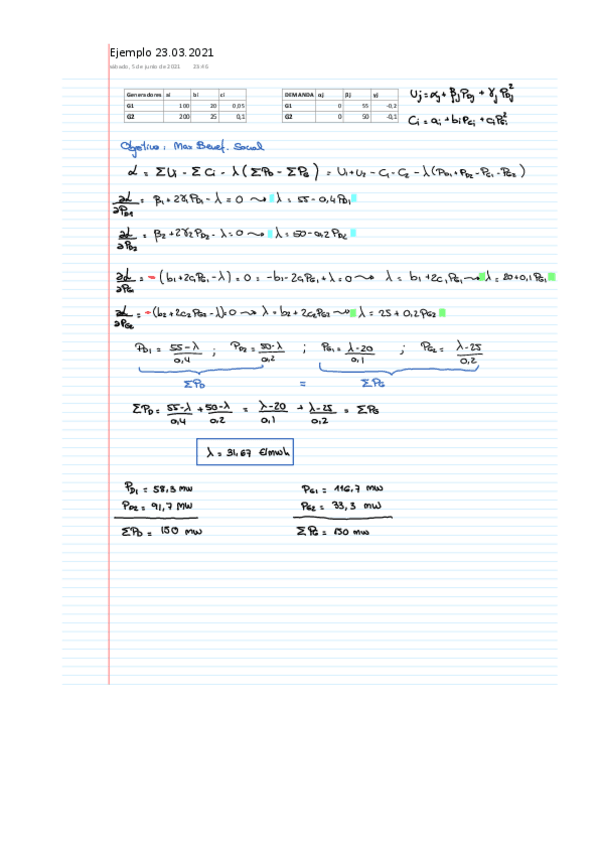 Ejemplo 23.03.2021
sábado, 5 de junio de 2021 23:46
Generadores ai bi ci
G1 100 20 0,05
G2 200 25 0,1
DEMANDA αj βj γj
G1 0 55 -0,2
G2 0 50 -0,1
Uj = αj + βj PDj + γj PDj²
Ci = ai + bi PGi + ci PGi²
Objetivo: Max Benef. Social
α = ΣUi - ΣCi - λ(ΣPD - ΣPG) = U1+U2 - C1 - C2 - λ(PD1 + PD2 - PG1 - PG2)
∂α/∂PD1 = β1 + 2γ1PD1 - λ = 0 → λ = 55 - 0,4PD1
∂α/∂PD2 = β2 + 2γ2PD2 - λ = 0 → λ = 50 - 0,2PD2
∂α/∂PG1 = -(b1 + 2c1PG1 - λ) = 0 = -b1 - 2c1PG1 + λ = 0 → λ = b1 + 2c1PG1 → λ = 20 + 0,1PG1
∂α/∂PG2 = -(b2 + 2c2PG2 - λ) = 0 → λ = b2 + 2c2PG2 → λ = 25 + 0,2PG2
PD1 = 55-λ/0,4 ; PD2 = 50-λ/0,2 ; PG1 = λ-20/0,1 ; PG2 = λ-25/0,2
ΣPD = ΣPG
ΣPD = 55-λ/0,4 + 50-λ/0,2 = λ-20/0,1 + λ-25/0,2 = ΣPG
λ = 31,67 €/MWh
PD1 = 58,3 MW PG1 = 116,7 MW
PD2 = 91,7 MW PG2 = 33,3 MW
ΣPD = 150 MW ΣPG = 150 MW